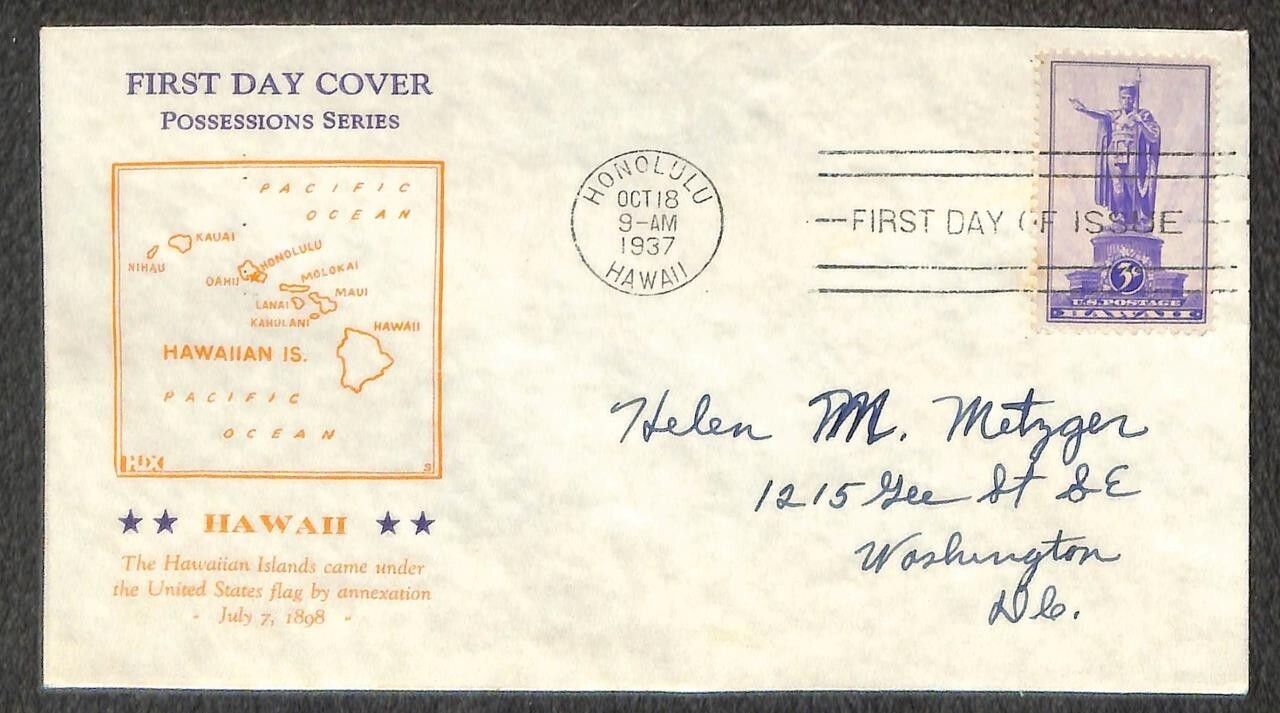 FIRST DAY COVER
POSSESSIONS SERIES
PACIFIC
OCEAN
KAUAI
NIHAU
HONOLULU
OAHU
MOLOKAI
LANAI
MAUI
KAHULANI
HAWAII
HAWAIIAN IS.
PACIFIC
OCEAN
S
★★ HAWAII ★★
The Hawaiian Islands came under
the United States flag by annexation
- July 7, 1898 -
HONOLULU
OCT 18
9-AM
1937
HAWAII
FIRST DAY OF ISSUE
3¢
U.S. POSTAGE
HAWAII
Helen M. Metzger
1215 Gee St SE
Washington
D.C.